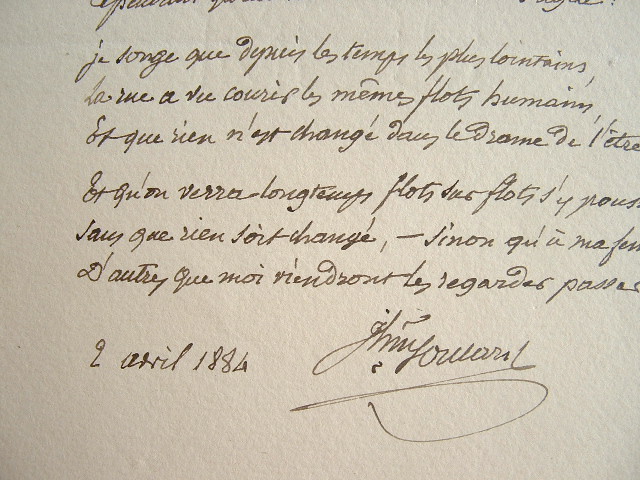 je songe que depuis les temps les plus lointains,
La rue a vu courir les mêmes flots humains,
Et que rien n'est changé dans le drame de l'être
Et qu'on verra longtemps flots sur flots s'y pouss
sans que rien soit changé, — sinon qu'à ma fen
D'autres que moi viendront les regarder passer
2 avril 1884